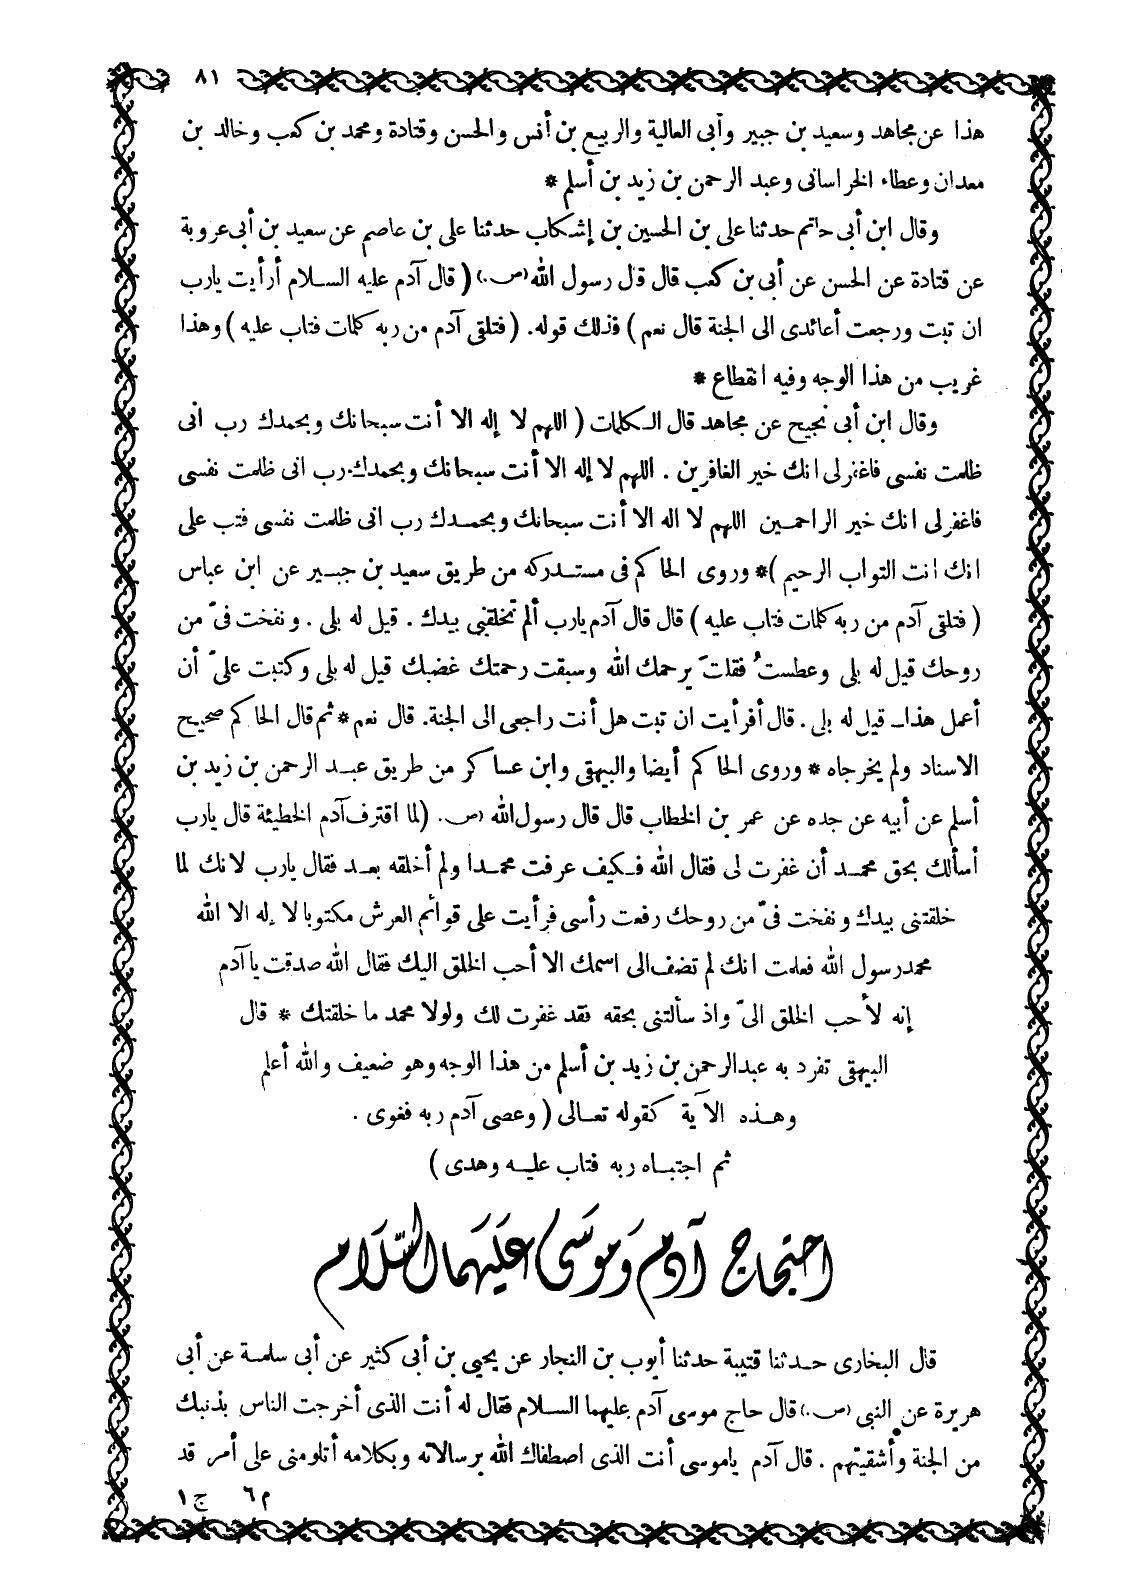 ٨١
هذا عن مجاهد وسعيد بن جبير وأبى العالية والربيع بن أنس والحسن وقتادة ومحمد بن كعب وخالد بن
معدان وعطاء الخراسانى وعبد الرحمن بن زيد بن أسلم *
وقال ابن أبى حاتم حدثنا على بن الحسين بن إشكاب حدثنا على بن عاصم عن سعيد بن أبى عروبة
عن قتادة عن الحسن عن أبى بن كعب قال قال رسول الله (ص.) ( قال آدم عليه السلام أرأيت يارب
ان تبت ورجعت أعائدى الى الجنة قال نعم ) فذلك قوله. ( فتلقى آدم من ربه كلمات فتاب عليه ) وهذا
غريب من هذا الوجه وفيه انقطاع *
وقال ابن أبى نجيح عن مجاهد قال الكلمات ( اللهم لا إله الا أنت سبحانك وبحمدك رب انى
ظلمت نفسى فاغفر لى انك خير الغافرين . اللهم لا إله الا أنت سبحانك وبحمدك رب انى ظلمت نفسى
فاغفر لى انك خير الراحمين اللهم لا اله الا أنت سبحانك وبحمدك رب انى ظلمت نفسى فتب على
انك انت التواب الرحيم )* وروى الحاكم فى مستدركه من طريق سعيد بن جبير عن ابن عباس
( فتلقى آدم من ربه كلمات فتاب عليه ) قال قال آدم يارب ألم تخلقنى بيدك . قيل له بلى . ونفخت فىّ من
روحك قيل له بلى وعطستُ فقلتَ يرحمك الله وسبقت رحمتك غضبك قيل له بلى وكتبت علىّ أن
أعمل هذا قيل له بلى . قال أفرأيت ان تبت هل أنت راجعى الى الجنة. قال نعم * ثم قال الحاكم صحيح
الاسناد ولم يخرجاه * وروى الحاكم أيضا والبيهقى وابن عساكر من طريق عبد الرحمن بن زيد بن
أسلم عن أبيه عن جده عن عمر بن الخطاب قال قال رسول الله (ص.) (لما اقترف آدم الخطيئة قال يارب
أسألك بحق محمد أن غفرت لى فقال الله فكيف عرفت محمدا ولم أخلقه بعد فقال يارب لانك لما
خلقتنى بيدك ونفخت فىّ من روحك رفعت رأسى فرأيت على قوائم العرش مكتوبا لا إله الا الله
محمد رسول الله فعلمت انك لم تضف الى اسمك الا أحب الخلق اليك فقال الله صدقت يا آدم
إنه لأحب الخلق الىّ واذ سألتنى بحقه فقد غفرت لك ولولا محمد ما خلقتك * قال
البيهقى تفرد به عبد الرحمن بن زيد بن أسلم من هذا الوجه وهو ضعيف والله أعلم
وهذه الآية كقوله تعالى ( وعصى آدم ربه فغوى .
ثم اجتباه ربه فتاب عليه وهدى )
احتجاج آدم وَموسَى عَلَيهَما السَّلَام
قال البخارى حدثنا قتيبة حدثنا أيوب بن النجار عن يحيى بن أبى كثير عن أبى سلمة عن أبى
هريرة عن النبى (ص.) قال حاج موسى آدم عليهما السلام فقال له أنت الذى أخرجت الناس بذنبك
من الجنة وأشقيتهم . قال آدم ياموسى أنت الذى اصطفاك الله برسالاته وبكلامه أتلومنى على أمر قد
م ٦ ج ١